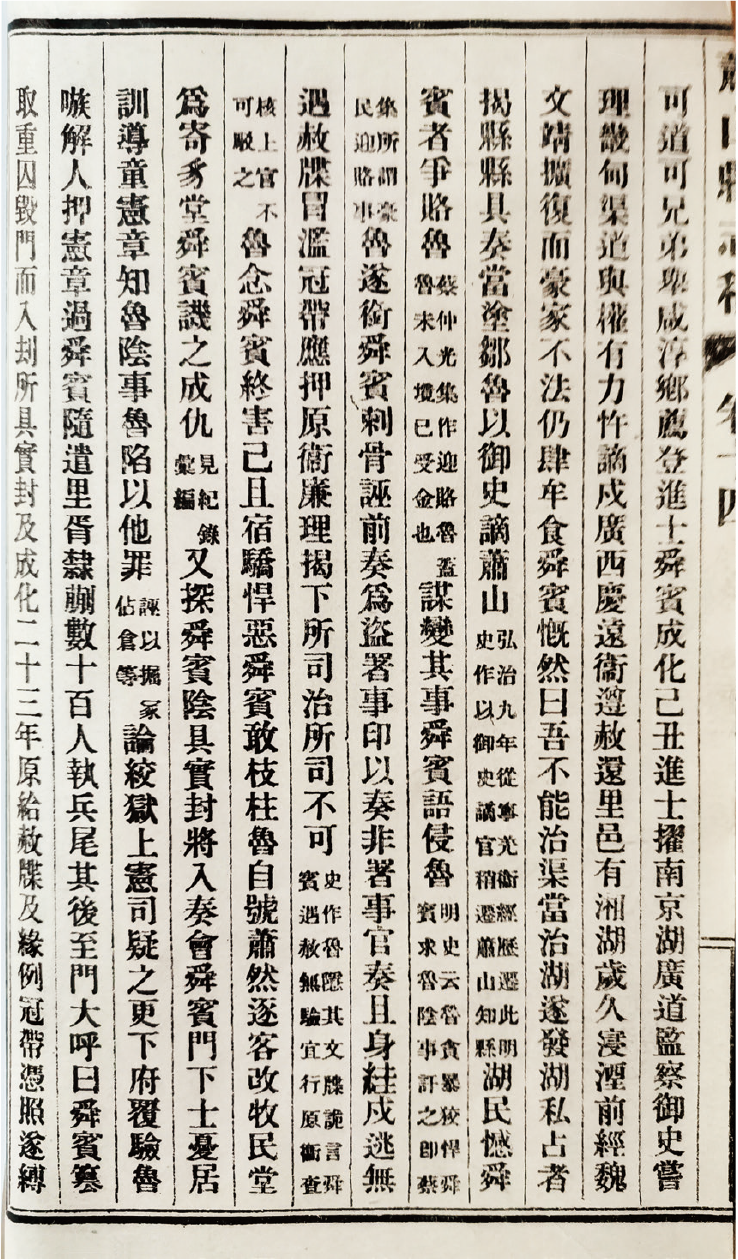 蕭山縣志稿 卷十四
可道可兄弟舉咸淳鄉薦登進士舜賓成化己丑進士擢南京湖廣道監察御史嘗
理畿甸渠道與權有力忤謫戍廣西慶遠衞遵赦還里邑有湘湖歲久寖湮前經魏
文靖擴復而豪家不法仍肆牟食舜賓慨然曰吾不能治渠當治湖遂發湖私占者
揭縣縣具奏當塗鄒魯以御史謫蕭山弘治九年從寧光衞經歷遷此明史作以御史謫官稍遷蕭山知縣湖民憾舜
賓者爭賂魯蔡仲光集作迎賂魯蓋魯未入境已受金也謀變其事舜賓語侵魯明史云魯貪暴狡悍舜賓求魯陰事訐之卽蔡
集所謂豪民迎賂事魯遂銜舜賓刺骨誣前奏爲盜署事印以奏非署事官奏且身絓戍逃無
遇赦牒冒濫冠帶應押原衞廉理揭下所司治所司不可史作魯隱其文牒詭言舜賓遇赦無驗宜行原衞查
核上官不可駁之魯念舜賓終害己且宿驕悍惡舜賓敢枝柱魯自號蕭然逐客改牧民堂
爲寄豸堂舜賓譏之成仇見紀錄彙編又探舜賓陰具實封將入奏會舜賓門下士憂居
訓導童憲章知魯陰事魯陷以他罪誣以掘冢佔倉等論絞獄上憲司疑之更下府覆驗魯
嗾解人押憲章過舜賓隨遣里胥隸蒯數十百人執兵尾其後至門大呼曰舜賓簒
取重囚毀門而入刦所具實封及成化二十三年原給赦牒及緣例冠帶憑照遂縛